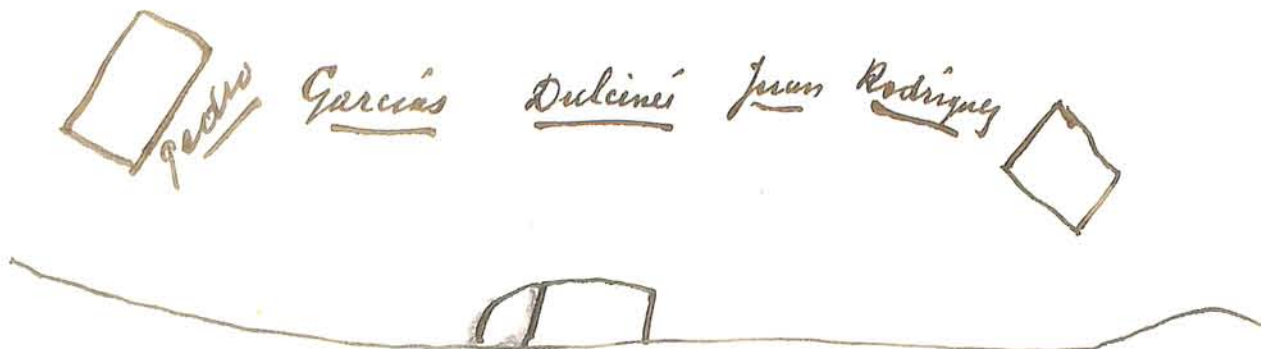 Pedro Garcías Dulcinei Juan Rodríguez